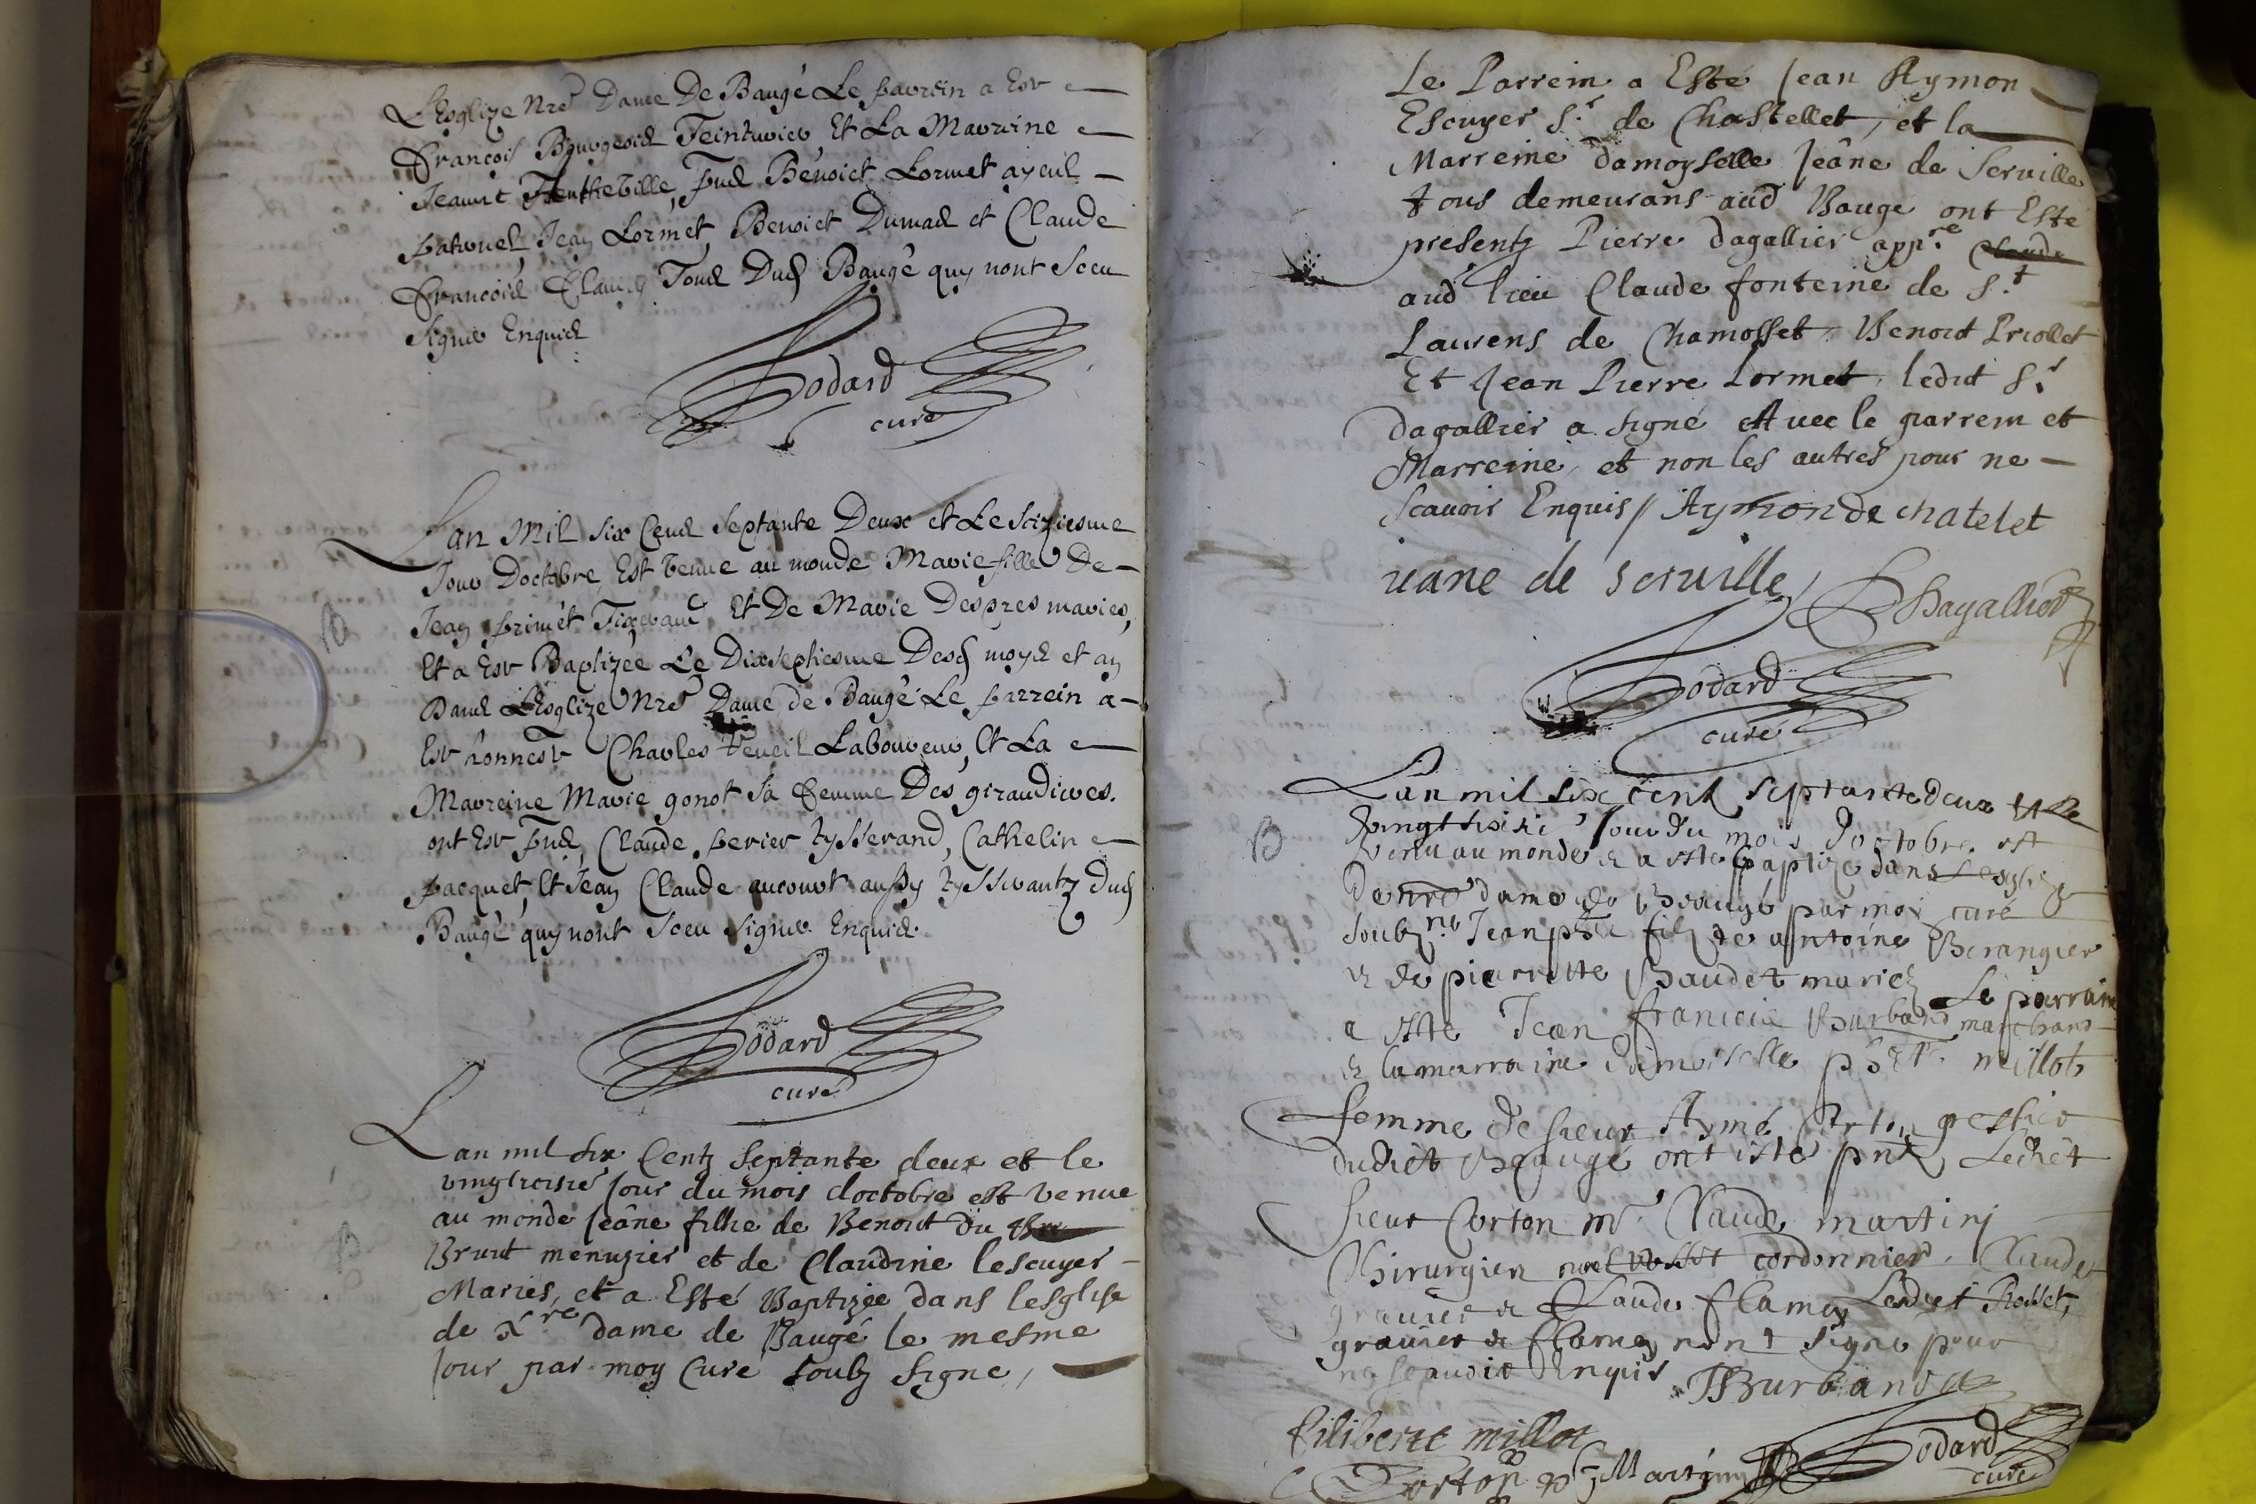 L'Esglize Nre Dame De Baugé Le parrein a Este
François Bourgeois Teinturier, Et La Marreine
Jeanne, pnts Benoict Lormet ayeul
paternel, Jean Lormet, Benoict Dumas et Claude
François Tous Dud Baugé quy nont Sceu
Signer Enquis
Godard
curé
Lan Mil Six Cens Septante Deux et Le Seziesme
Jour Doctobre, Est Venue au monde Marie fille De
Jean primet Tixerand Et De Marie Despres maries,
Et a Este Baptizée Le Dixseptiesme Desd moys et an
Dans L'Esglize Nre Dame de Baugé Le parrein a
Este honneste Charles Laboureur, Et La
Marreine Marie gonot Sa femme Des giraudieres.
ont Este pnts, Claude perier tysserand, Cathelin
pacquet, Et Jean Claude aucourt aussy tysserantz dud
Baugé quy nont Sceu Signer Enquis
Godard
curé
Lan mil six Centz Septante deux et le
vingtroisie Jour du mois doctobre est venue
au monde Jeâne fillie de Benoict Du
Bruit menuzier et de Claudine lescuyer
Mariés, et a Esté Baptizée dans lesglise
de Nre dame de Baugé le mesme
Jour par moy Curé soubz signé,
Le Parrein a Esté Jean Aymon
Escuyer Sr de Chastellet, et la
Marreine damoyselle Jeâne de Seruille
tous demeurans aud Bauge ont Esté
presentz Pierre dagallier appre Claude
aud lieu Claude fonteine de St
Laurens de Chamosset Benoict Priollet
Et Jean Pierre Lormet, ledit Sr
dagallier a signé Auec le parrein et
Marreine, et non les autres pour ne
Scauoir Enquis // Aymon de chatelet
iane de seruille
Dagallier
Godard
curé
Lan mil six cent septante deux Et le
vingt troisie Jour du mois doctobre est
venu au monde & a esté baptizé dans Lesglize
De nre dame de Beaugé par moi curé
soubzne Jean phte filz de antoine Berangier
& de pierrette Baudet mariez Le parrain
a esté Jean francois Burband marchand
& la marraine damoiselle phte millot
femme de sieur Aymé Corton greffier
dudict Beaugé ont esté pnts Ledict
sieur Corton mr Claude martin
Chirurgien cordonnier, Claude
grauier & Claude flamey Ledict
grauier & flamey nont signé pour
ne scauoir Enquis JBurband
filiberte millot
Corton Martin Godard
curé